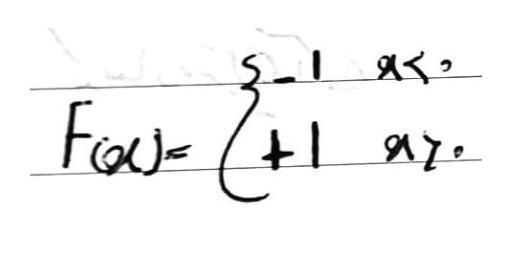 F(x) = { -1  x < 0
+1  x ≥ 0